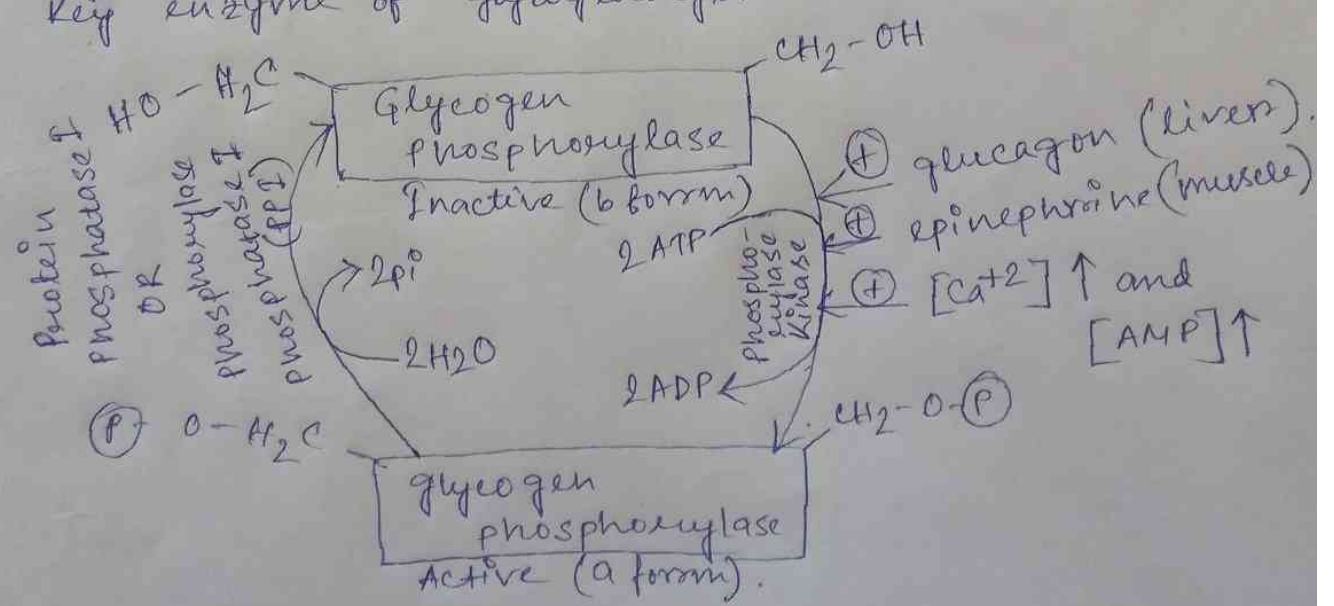 Key enzyme of
HO - H2C
CH2 - OH
Glycogen
phosphorylase
Inactive (b form)
Protein
phosphatase I
OR
phosphorylase
phosphatase I
(PP I)
2pi
2H2O
2ATP
phospho-
rylase
kinase
2ADP
(+) glucagon (liver).
(+) epinephrine (muscle)
(+) [Ca+2] ↑ and
[AMP] ↑
(P) O - H2C
CH2 - O - (P)
glycogen
phosphorylase
Active (a form).